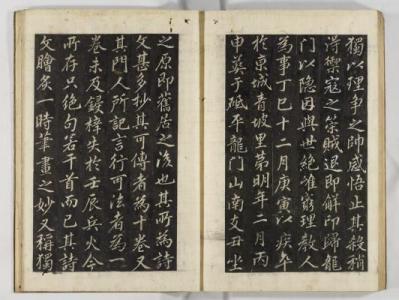 獨以理爭之帥感悟止其殺稍
得禦寇之策賊退即解印歸龍
門以隱因與世絕唯窮理教人
為事丁巳十二月庚寅以疾卒
於京城青坡里第明年二月丙
申葬于砥平龍門山南支丑坐
之原即舊居之後也其所為詩
文甚多抄其可傳者為十卷又
其門人所記言行可法者為一
卷未及鋟梓失於壬辰兵火今
所存只絕句若干首而已其詩
文膾炙一時筆畫之妙又稱獨